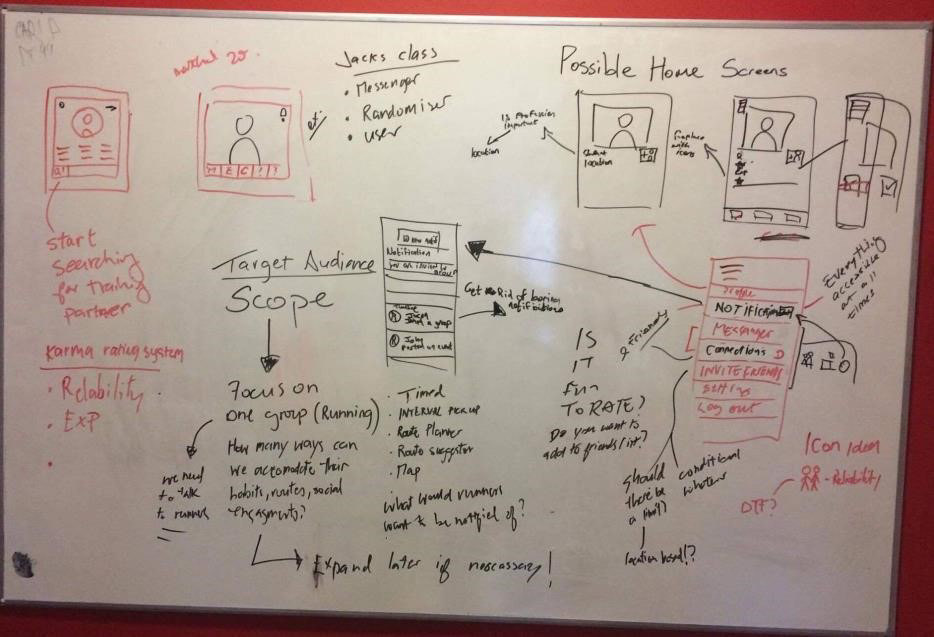 Jacks class
• Messenger
• Randomiser
• User
Possible Home Screens
Is Profession
important
location
Student
location
Replace
with
icons
start
searching
for training
partner
Karma rating system
• Relability
• EXP
•
Target Audience
Scope
Focus on
one group (Running)
How many ways can
we accomodate their
habits, routes, social
engagements?
we need
to talk
to runners
Expand later if neccassary!
Notification
Get Rid of boring
notifications
• Timed
• INTERVAL PICK UP
• Route Planner
• Route suggestor
• Map
What would runners
want to be notified of?
IS
IT
Fun
To RATE?
Do you want to
add to friends list?
Profile
NOTIFICATION
Messenger
Connections
INVITE FRIENDS
Setting
Log out
Everything
accessible
at all
times
should
there be
a limit?
location based!?
conditional
whatever
Icon idea
- Reliability
DTF?